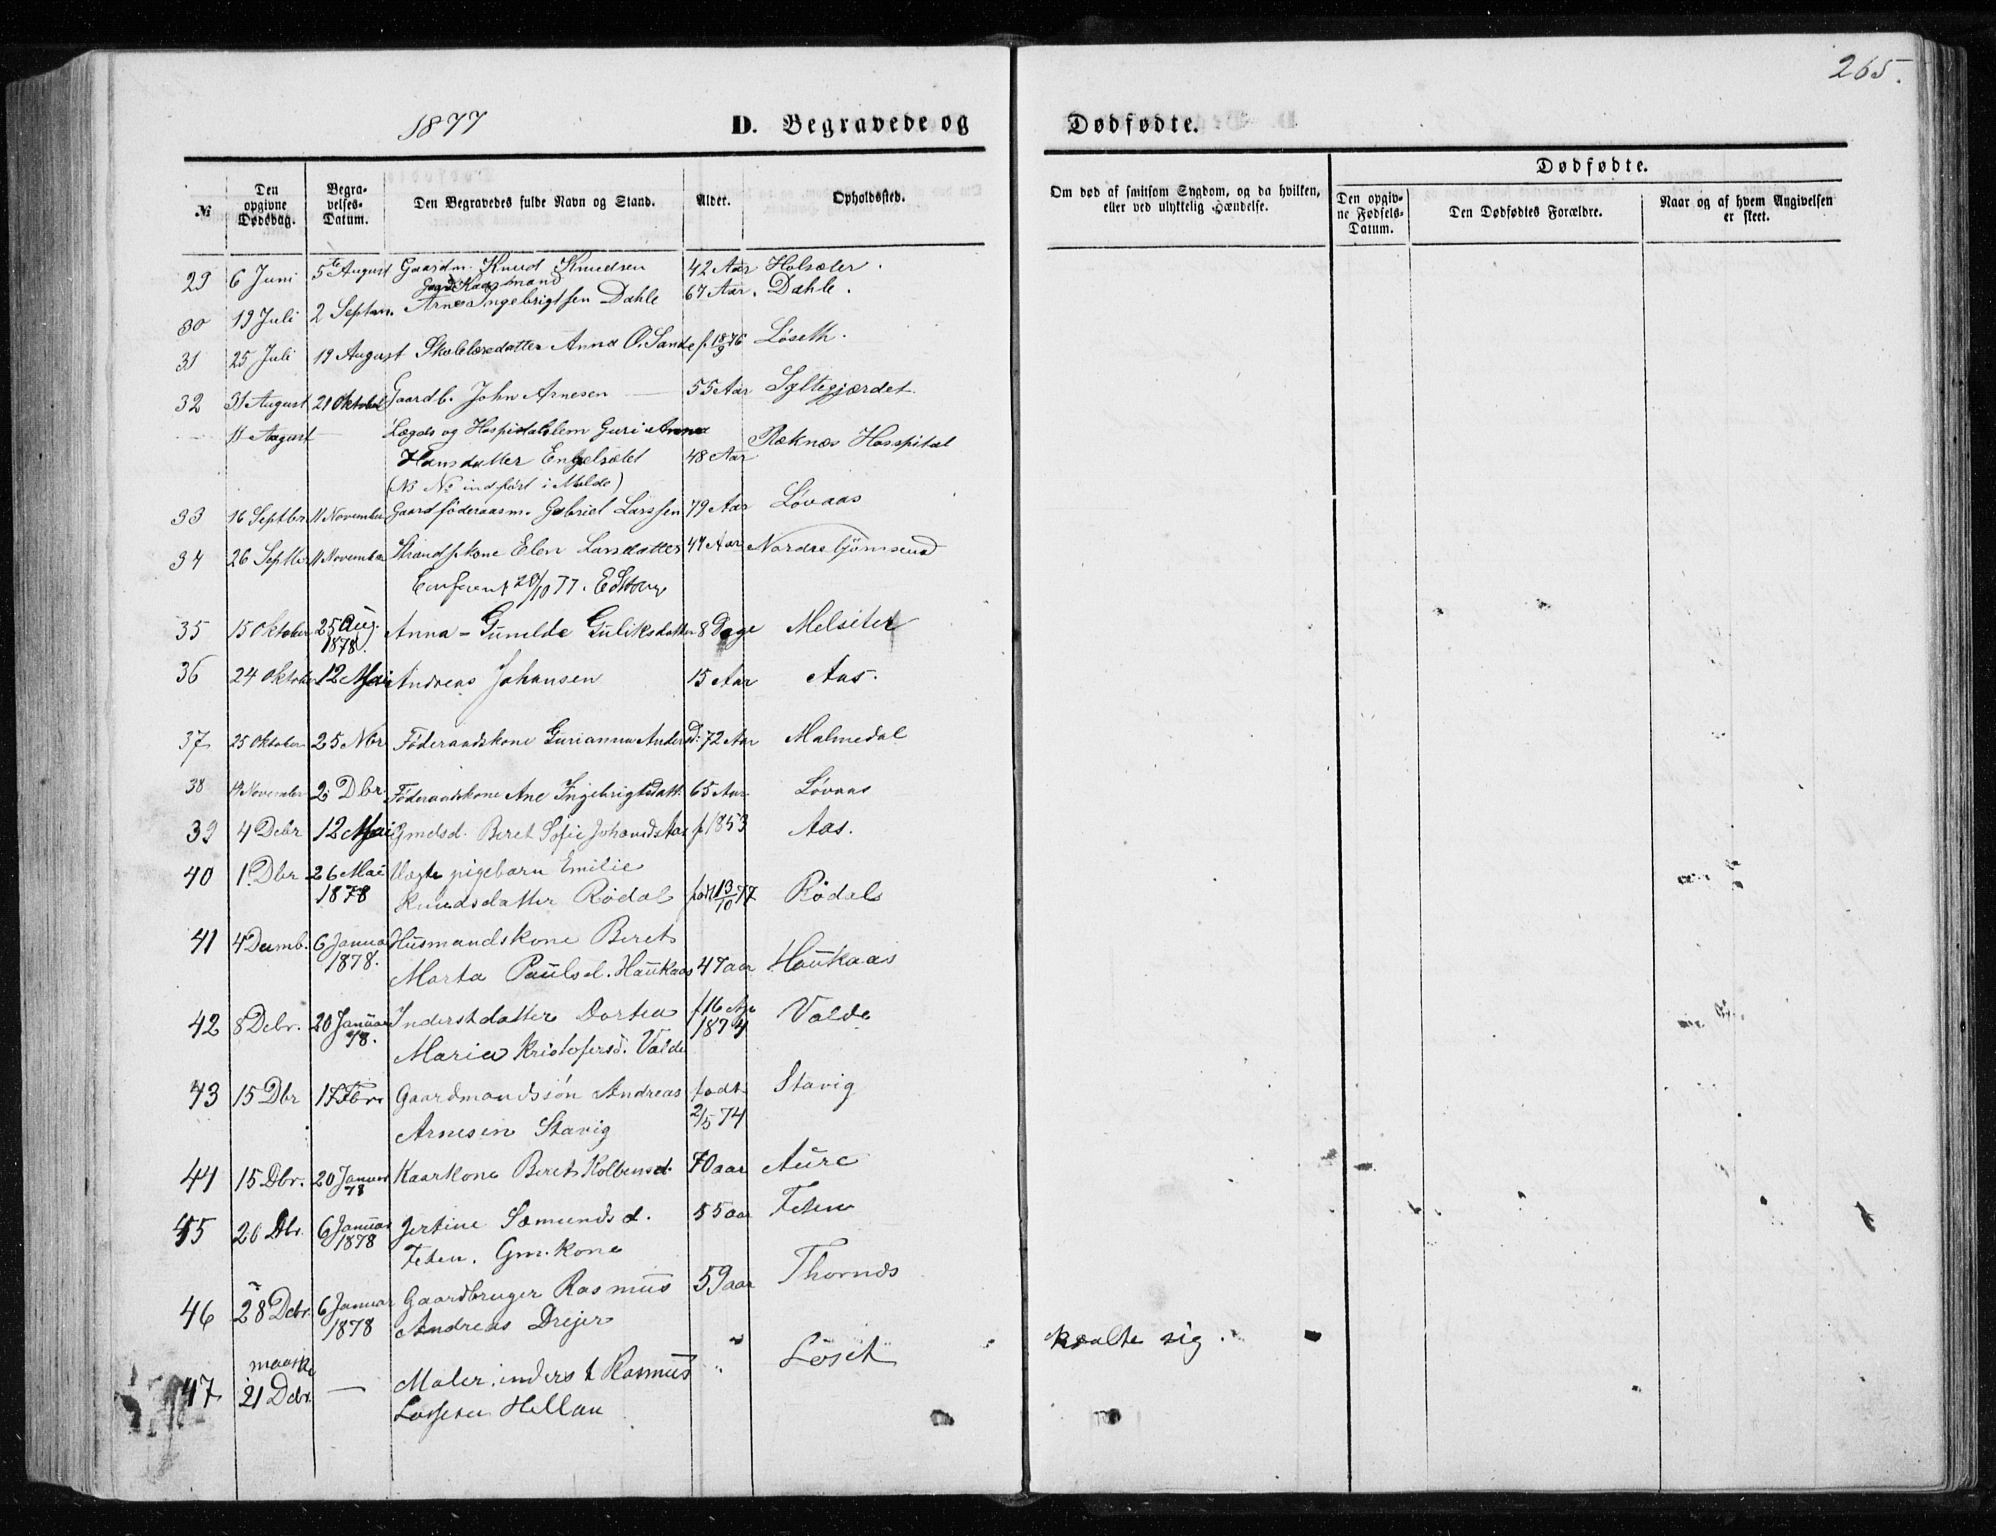 265.
1877
D. Begravede og Dødfødte.
Dødfødte.
№
Den opgivne Dødsdag.
Begravelses-Datum.
Den Begravedes fulde Navn og Stand.
Alder.
Opholdssted.
Om død af smitsom Sygdom, og da hvilken, eller ved ulykkelig Hændelse.
Den opgivne Fødsels-Datum.
Den Dødfødtes Forældre.
Naar og af hvem Angivelsen er skeet.
29 6 Juni 5te August Gaardm. Knud Knudsen 42 Aar Holsæter.
30 19 Juli 2 Septem. Arne Ingebrigtsen Dahle 67 Aar. Dahle.
31 25 Juli 19 August Skolelæredatter Anna O. Sande f. 18/9 76 Løseth.
32 31 August 21 Oktober Gaardb. John Arnesen 55 Aar Syltegjærdet
— 11 August — Lægds og Hospidalslem Guri Anna
Hansdatter Engelsætet 48 Aar Reknæs Hosspital
(NB No indført i Molde)
33 16 Septbr 11 November Gaardføderaasm. Gabriel Larssen 79 Aar Løvaas
34 26 Septbr 11 November Strandskone Elen Larsdatter 47 Aar Nordre Gjømseud
Conferert 20/10 77.
35 15 Oktober 25 Aug. 1878. Anna-Gunelde Guliksdatter 8 Dage Melseter
36 24 Oktober 12 Mai Andreas Johansen 15 Aar Aas.
37 25 Oktober 25 Nbr Føderaadskone Gurianna Anders D. 72 Aar Malmedal
38 19 November 2 Dbr Føderaadskone Ane Ingebrigtsdatt. 65 Aar Løvaas
39 4 Debr 12 Mai Gmdsd. Beret Sofie Johansd. Aas f. 1853 Aas.
40 1. Dbr 26 Mai Uægte pigebarn Emilie
1878 Knudsdatter Rødal født 13/10 77 Rødals
41 4 Decmb. 6 Januar Husmandskone Beret
1878. Marta Paulsd. Haukaas 47 aar Haukaas
42 8 Debr. 20 Januar Inderstdatter Dortea f. 16 Apr Valde
78. Maria Kristofersd. Valde 1874
43 15 Dbr 17 Febr. Gaardmandssøn Andreas født Stavig
Arnesen Stavig 2/5 74
44 15 Dbr. 20 Januar 78 Kaarkone Beret Kolbensd. 70 aar Aure
45 20 Dbr. 6 Januar Jertine Sæmundsd. 55 aar Feten
1878 Feten. Gm. kone
46 28 Debr. 6 Januar Gaardbruger Rasmus 59 aar Thornes
1878 Andreas Drejer
47 maaske
21 Debr. — Maler, inderst Rasmus " Løset kvalte sig.
Larsen Hellan